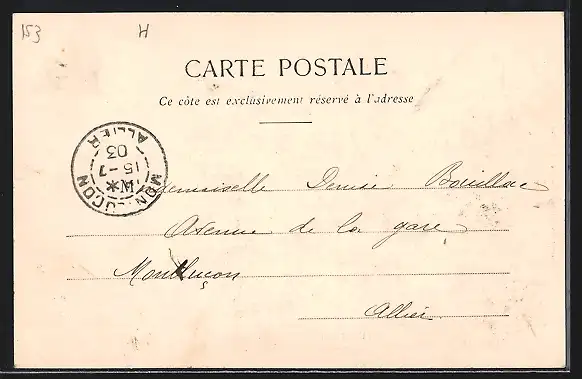 153 H
CARTE POSTALE
Ce côte est exclusivement réservé à l'adresse
MONTLUÇON
ALLIER
M*
15 -7
03
Mademoiselle Denise Bouillac
Avenue de la gare
Montluçon
Allier